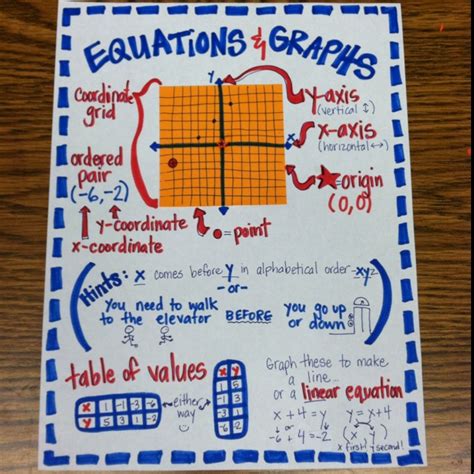 EQUATIONS & GRAPHS
Coordinate
grid
y
x
y-axis
(vertical ↕)
x-axis
(horizontal ↔)
origin
(0,0)
ordered
pair
(-6,-2)
y-coordinate
x-coordinate
= point
Hints: x comes before y in alphabetical order - xyz
-or-
You need to walk
to the elevator
BEFORE
you go up
or down
table of values
x 1 -1 -3 -6
y 5 3 1 -2
either
way
x y
1 5
-1 3
-3 1
-6 -2
Graph these to make
a line...
or a linear equation
x + 4 = y
y = x+4
-6 + 4 = -2
(x, y)
x first! y second!